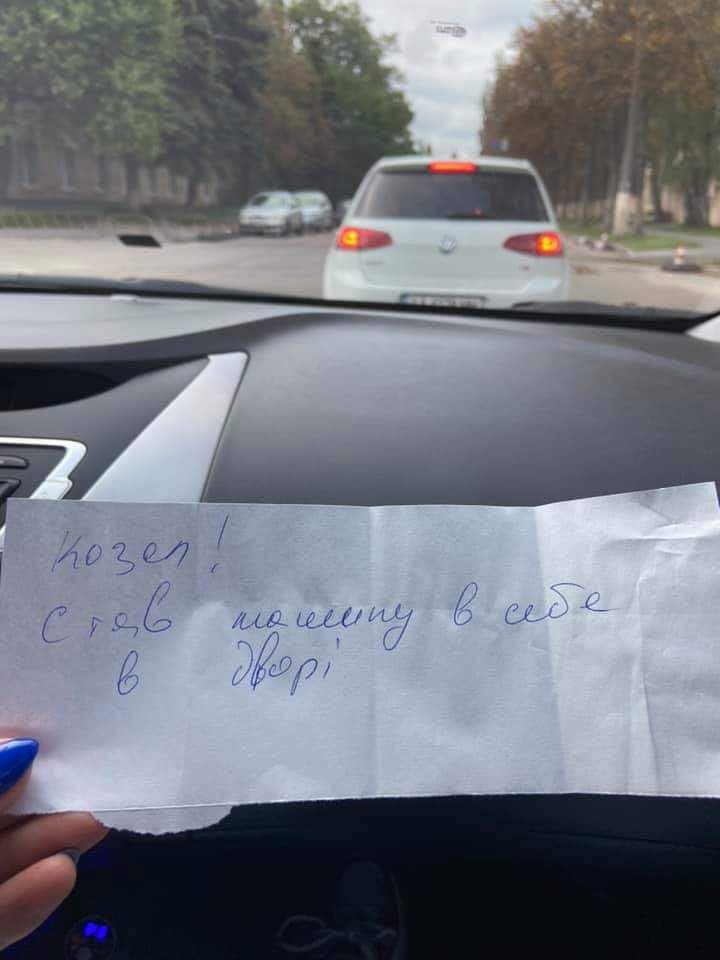 Козел!
Став машину в себе
в дворі